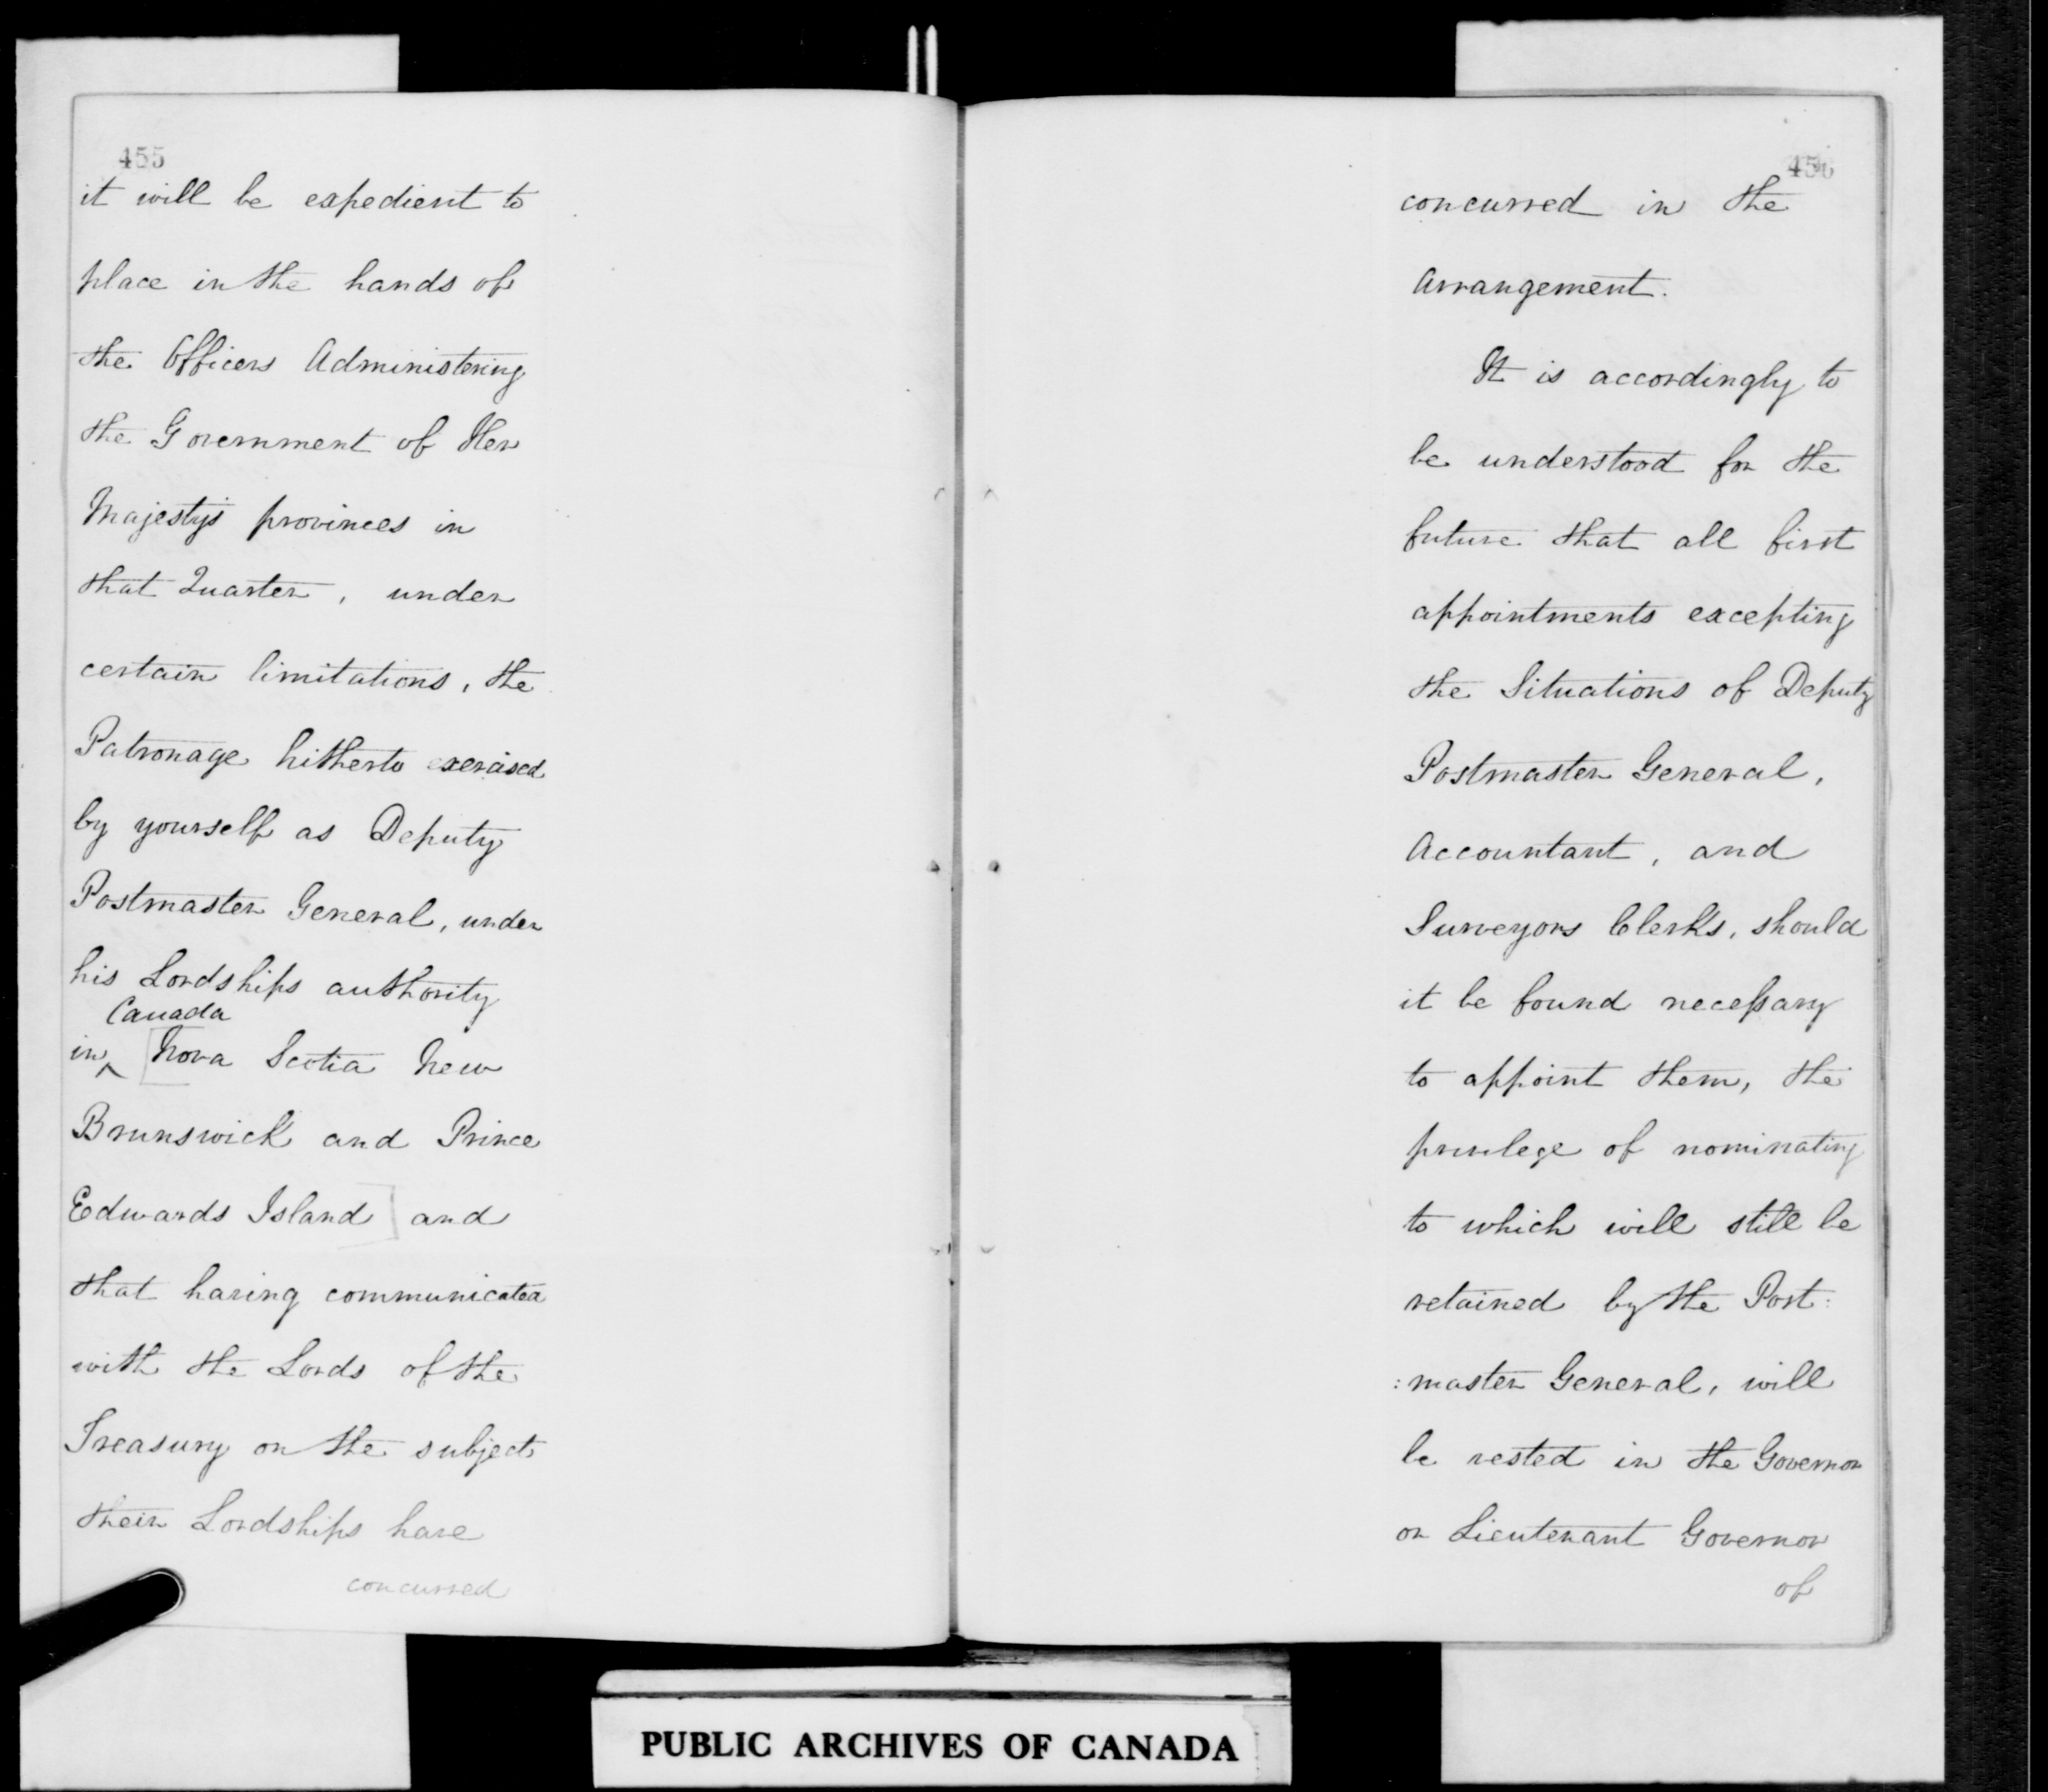 455
it will be expedient to
place in the hands of
the Officers Administering
the Government of Her
Majestys provinces in
that Quarter, under
certain limitations, the
Patronage hitherto exercised
by yourself as Deputy
Postmaster General, under
his Lordships authority
Canada
in ^ [Nova Scotia New
Brunswick and Prince
Edwards Island] and
that having communicated
with the Lords of the
Treasury on the subject
their Lordships have
concurred
456
concurred in the
Arrangement.
It is accordingly to
be understood for the
future that all first
appointments excepting
the Situations of Deputy
Postmaster General,
Accountant, and
Surveyors Clerks, should
it be found necessary
to appoint them, the
privilege of nominating
to which will still be
retained by the Post:
:master General, will
be vested in the Governor
or Lieutenant Governor
of
PUBLIC ARCHIVES OF CANADA